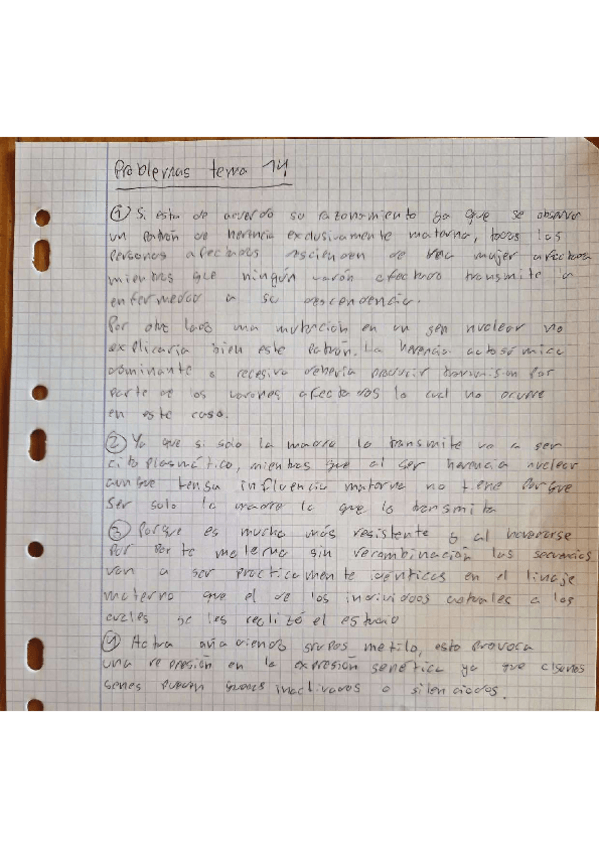 Problemas tema 14
① Si esta de acuerdo su razonamiento ya que se observa
un patrón de herencia exclusivamente materna, todas las
personas afectadas descienden de una mujer afectada
mientras que ningún varón afectado transmite la
enfermedad a su descendencia.
Por otro lado una mutación en un gen nuclear no
explicaria bien este patrón. La herencia autosómica
dominante o recesiva deberia producir transmision por
parte de los varones afectados lo cual no ocurre
en este caso.
② Ya que si solo la madre la transmite va a ser
citoplasmático, mientras que al ser herencia nuclear
aunque tenga influencia materna no tiene porque
ser solo la madre la que lo transmita
③ Porque es mucho más resistente y al heredarse
por parte materna sin recombinación las secuencias
van a ser practicamente identicas en el linaje
materno que el de los individuos actuales a los
cuales se les realizó el estudio
④ Actua añadiendo grupos metilo, esto provoca
una represión en la expresión genética ya que algunos
genes pueden inactivados o silenciados.